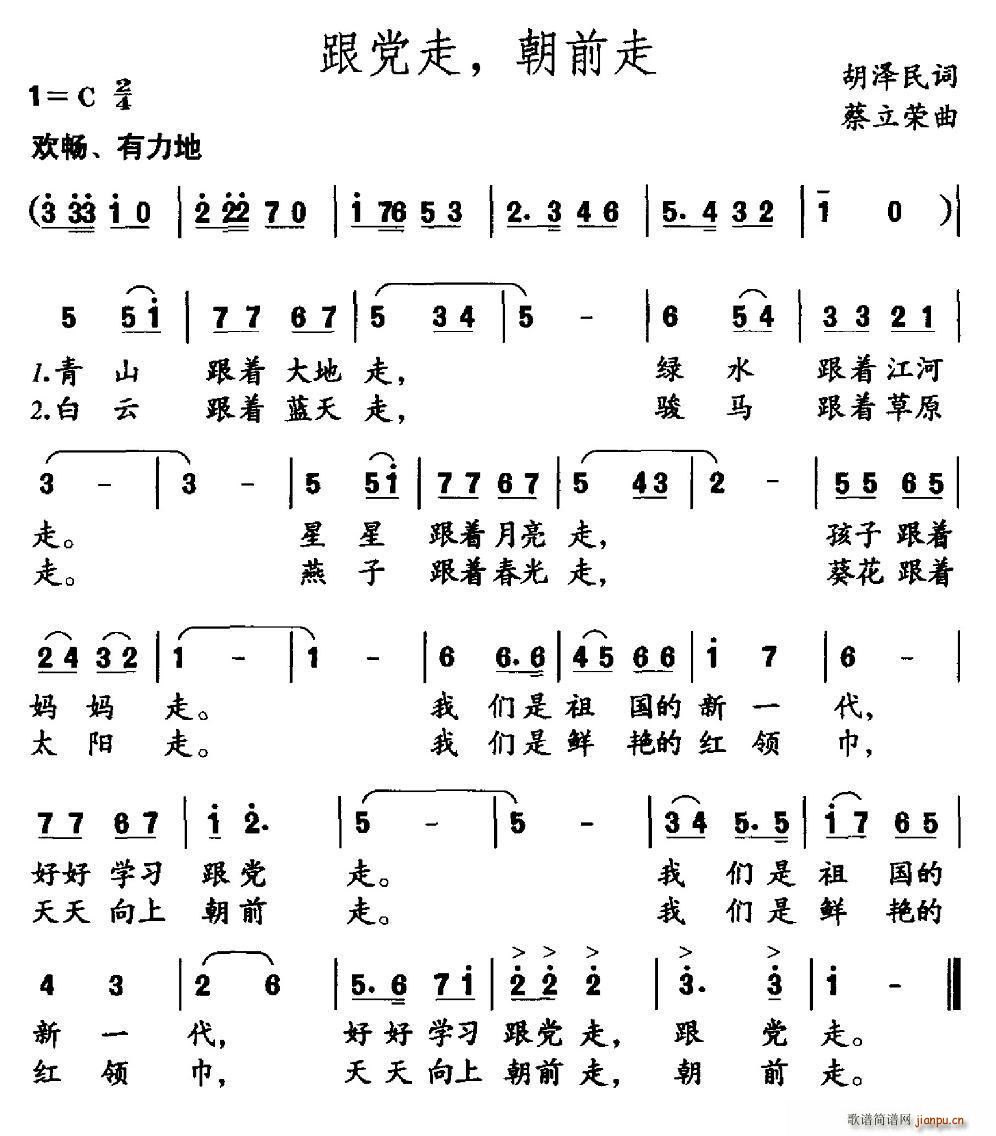 跟党走，朝前走
胡泽民词
1=C 2/4
蔡立荣曲
欢畅、有力地
(3 33 1 0 | 2 22 7 0 | 1 76 5 3 | 2. 3 4 6 | 5. 4 3 2 | 1 0 )|
5 5 1 | 7 7 6 7 | 5 3 4 | 5 - | 6 5 4 | 3 3 2 1 |
1.青 山 跟着 大地 走， 绿 水 跟着 江河
2.白 云 跟着 蓝天 走， 骏 马 跟着 草原
3 - | 3 - | 5 5 1 | 7 7 6 7 | 5 4 3 | 2 - | 5 5 6 5 |
走。 星 星 跟着 月亮 走， 孩子 跟着
走。 燕 子 跟着 春光 走， 葵花 跟着
2 4 3 2 | 1 - | 1 - | 6 6. 6 | 4 5 6 6 | 1 7 | 6 - |
妈 妈 走。 我 们是 祖 国的 新 一 代，
太 阳 走。 我 们是 鲜 艳的 红 领 巾，
7 7 6 7 | 1 2. | 5 - | 5 - | 3 4 5. 5 | 1 7 6 5 |
好好 学习 跟党 走。 我 们是 祖 国的
天天 向上 朝前 走。 我 们是 鲜 艳的
4 3 | 2 6 | 5. 6 7 1 | > 2 > 2 > 2 | > 3. > 3 | 1 - ‖
新 一 代， 好 好 学习 跟党 走， 跟 党 走。
红 领 巾， 天 天 向上 朝前 走， 朝 前 走。
歌谱简谱网 jianpu.cn